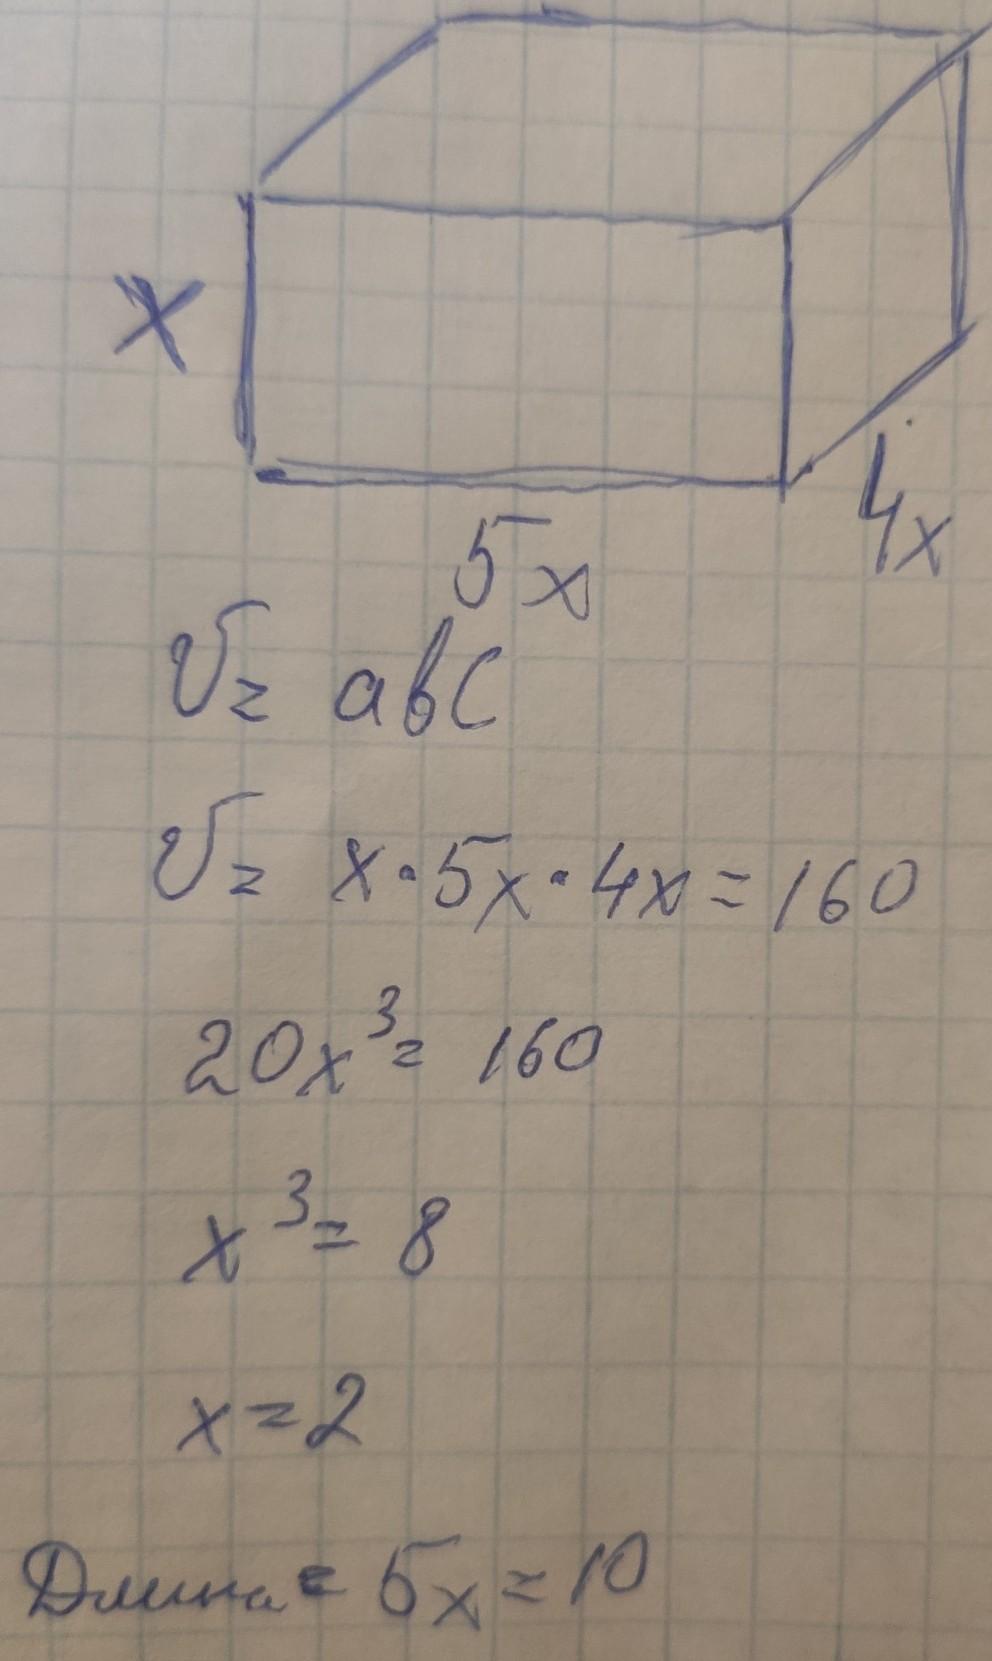 x
4x
5x
V = abc
V = x·5x·4x = 160
20x³ = 160
x³ = 8
x = 2
Длина = 5x = 10